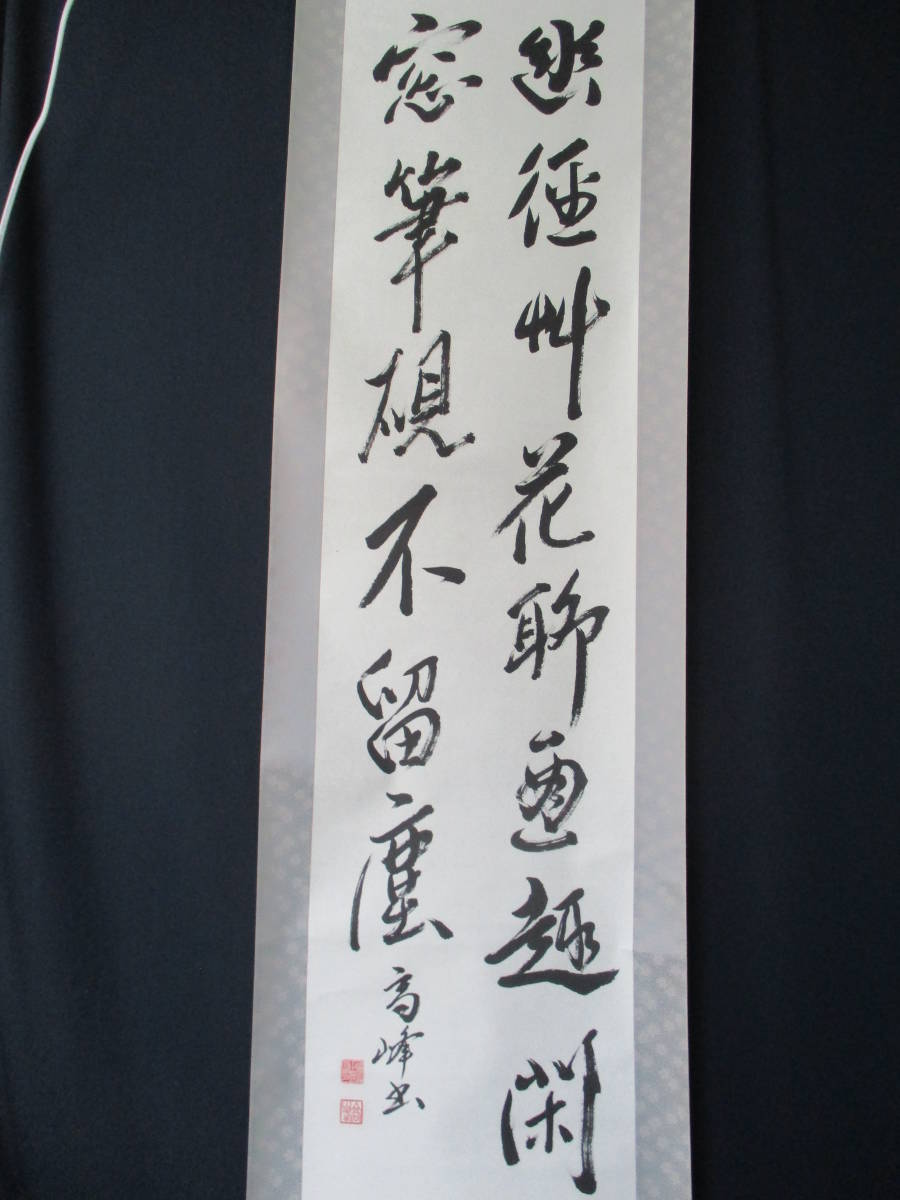 幽徑艸花聊適趣閑
窓筆硯不留塵
高峰书